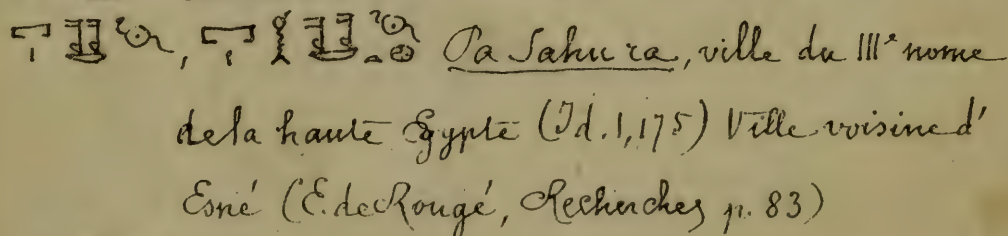 , Pa Sahu ra, ville du IIIe nome
de la haute Egypte (Id. 1, 175) Ville voisine d'
Esné (E. de Rougé, Recherches p. 83)